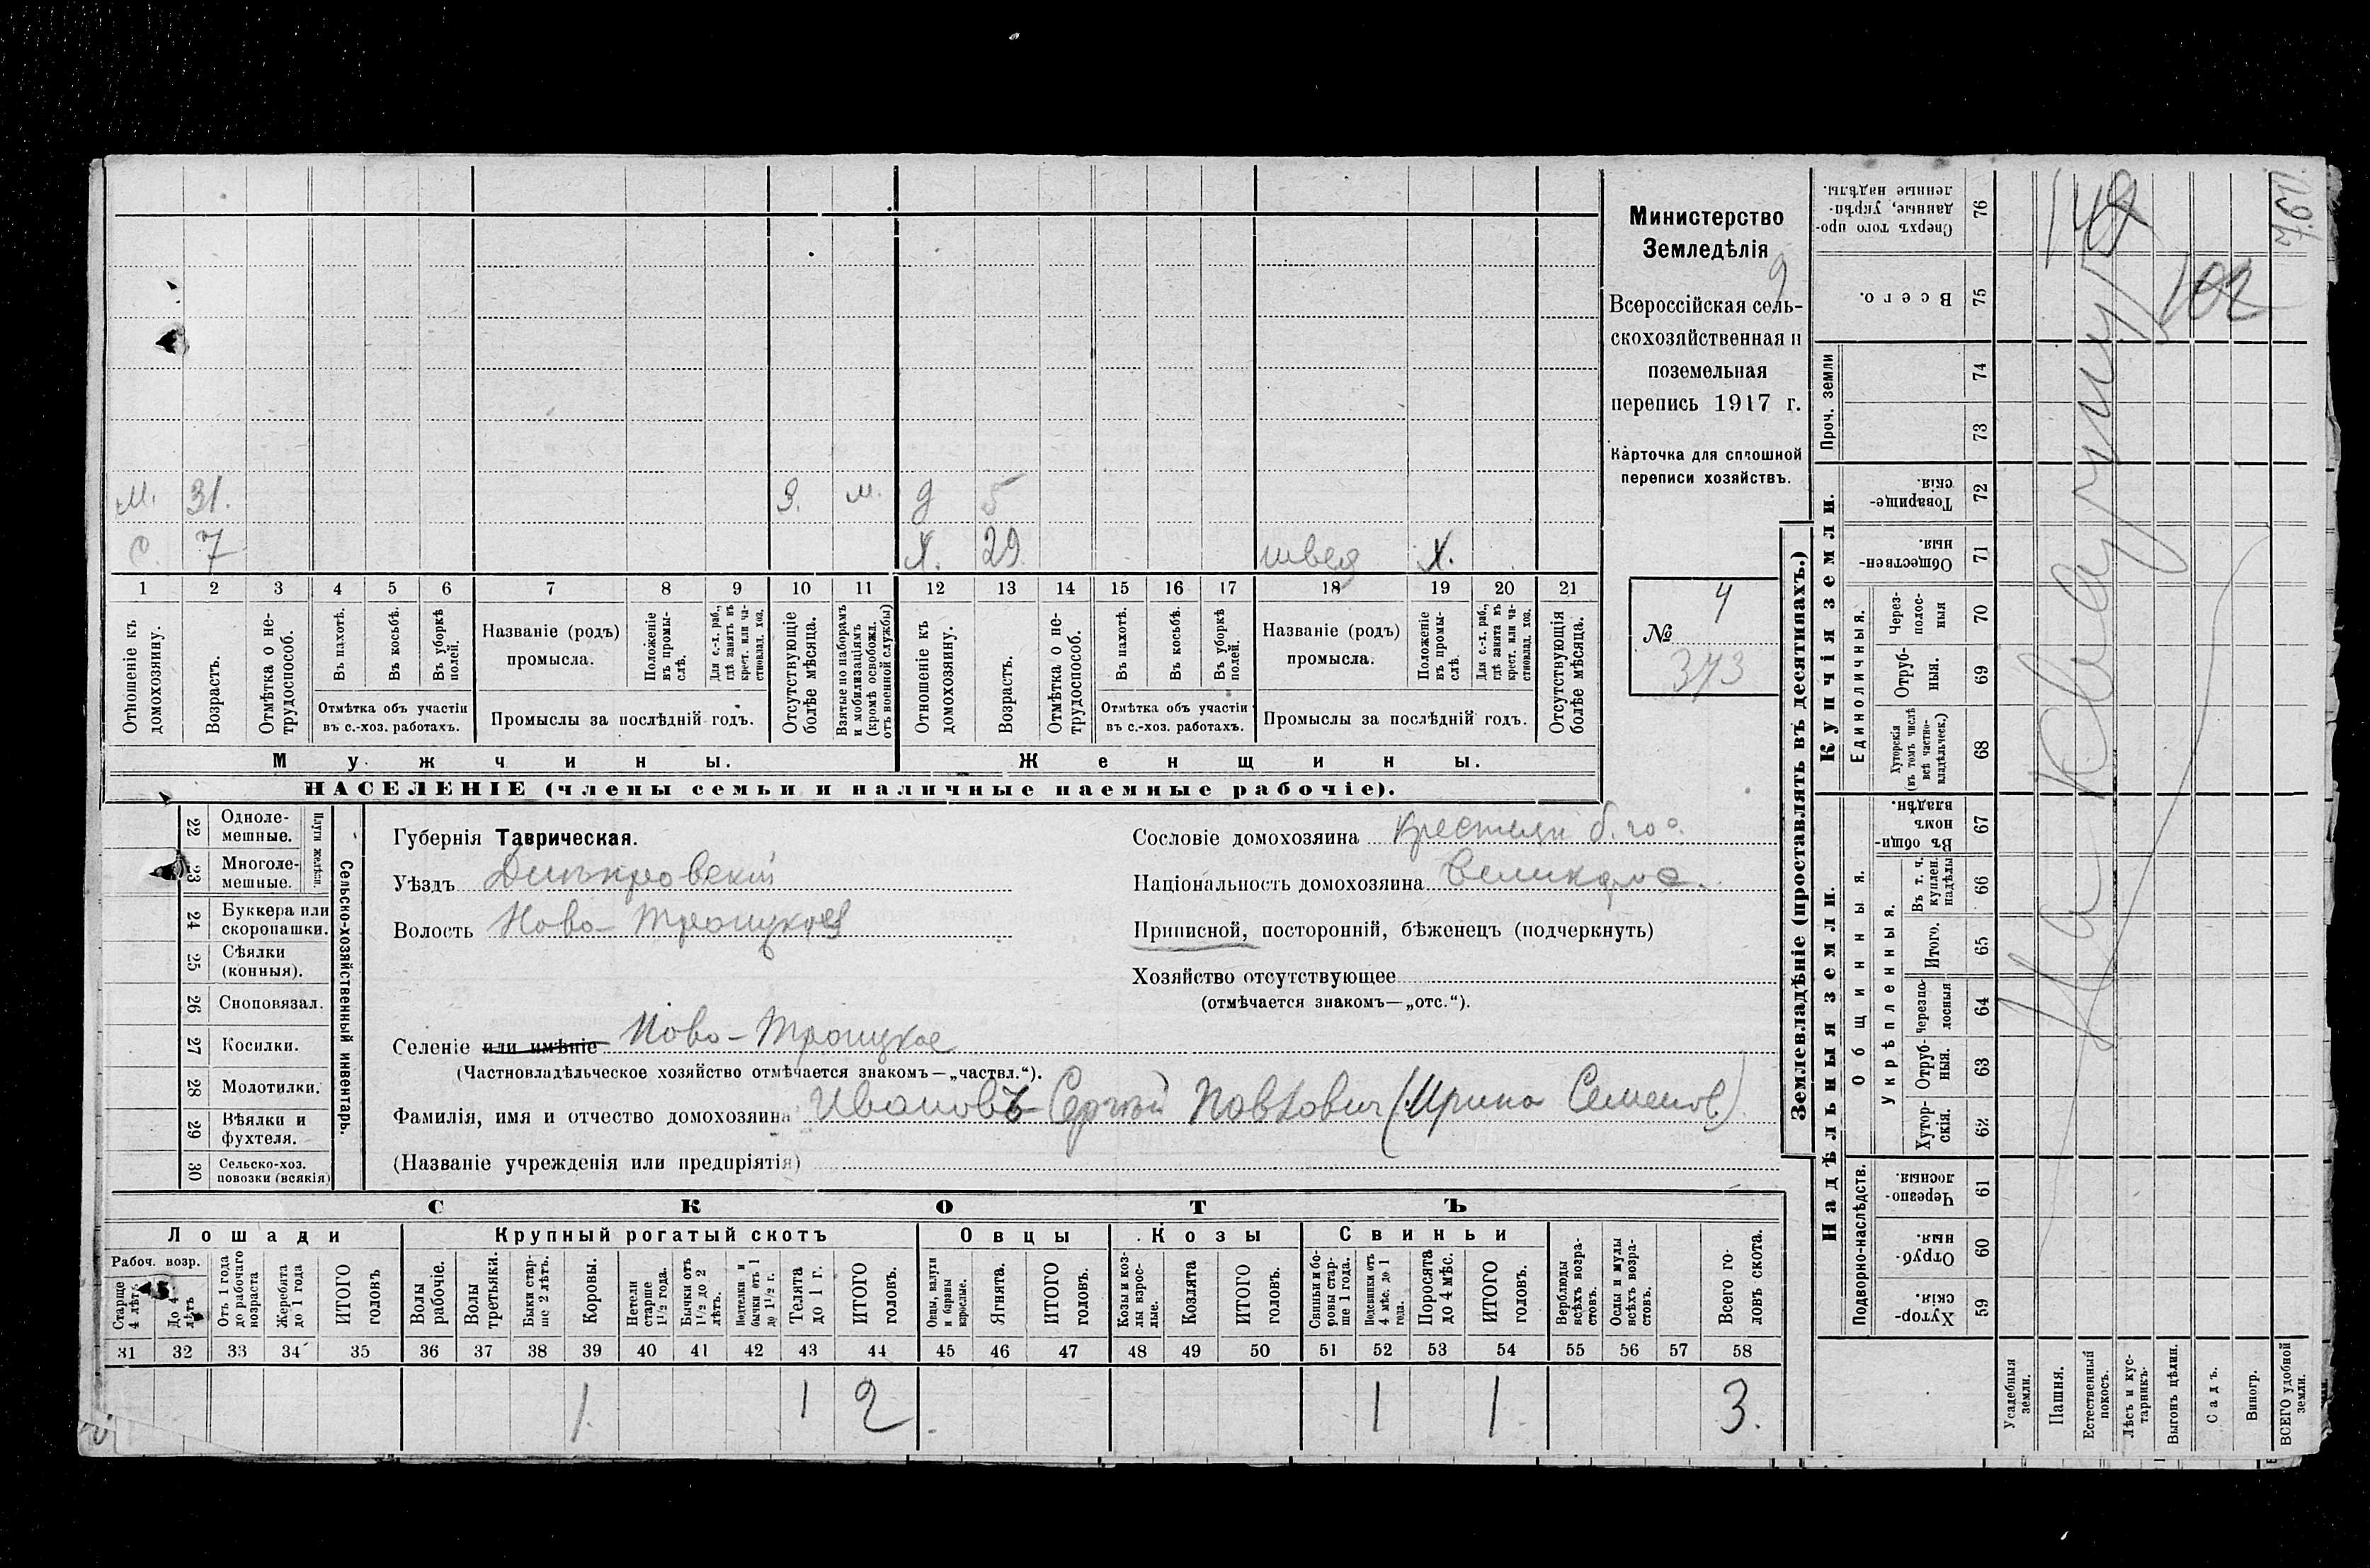 Министерство
Земледѣлія
9
Всероссійская сель-
скохозяйственная и
поземельная
перепись 1917 г.
Карточка для сплошной
переписи хозяйствъ.
№ 4
373
м. 31. З. м. д 5
с. 7 Х. 29 швея Х.
1 2 3 4 5 6 7 8 9 10 11 12 13 14 15 16 17 18 19 20 21
Отношеніе къ домохозяину.
Возрастъ.
Отмѣтка о не-трудоспособ.
Въ пахотѣ.
Въ косьбѣ.
Въ уборкѣ полей.
Отмѣтка объ участіи
въ с.-хоз. работахъ.
Названіе (родъ)
промысла.
Положеніе въ промы-слѣ.
Для с.-х. раб., гдѣ занятъ въ крест. или ча-стновлад. хоз.
Промыслы за послѣдній годъ.
Отсутствующіе болѣе мѣсяца.
Взятые по наборамъ и мобилизаціямъ (кромѣ освобожд. отъ военной службы)
Отношеніе къ домохозяину.
Возрастъ.
Отмѣтка о не-трудоспособ.
Въ пахотѣ.
Въ косьбѣ.
Въ уборкѣ полей.
Отмѣтка объ участіи
въ с.-хоз. работахъ.
Названіе (родъ)
промысла.
Положеніе въ промы-слѣ.
Для с.-х. раб., гдѣ занята въ крест. или ча-стновлад. хоз.
Промыслы за послѣдній годъ.
Отсутствующія болѣе мѣсяца.
Мужчины.
Женщины.
НАСЕЛЕНІЕ (члены семьи и наличные наемные рабочіе).
22 Одноле-мешные.
23 Многоле-мешные.
Плуги желѣзн.
24 Буккера или скоропашки.
25 Сѣялки (конныя).
26 Сноповязал.
27 Косилки.
28 Молотилки.
29 Вѣялки и фухтеля.
30 Сельско-хоз. повозки (всякія)
Сельско-хозяйственный инвентарь.
Губернія Таврическая.
Уѣздъ Днѣпровскій
Волость Ново-Троицкая
Сословіе домохозяина крестьян б. гос.
Національность домохозяина Великорос.
Приписной, посторонній, бѣженецъ (подчеркнуть)
Хозяйство отсутствующее
(отмѣчается знакомъ—„отс.“).
Селеніе или имѣніе Ново-Троицкое
(Частновладѣльческое хозяйство отмѣчается знакомъ—„частвл.“).
Фамилія, имя и отчество домохозяина Ивановъ Сергѣй Павлович (Ирина Семенов.)
(Названіе учрежденія или предпріятія)
СКОТЪ
Лошади
Крупный рогатый скотъ
Овцы
Козы
Свиньи
Рабоч. возр.
Старше 4 лѣтъ
До 4 лѣтъ
Отъ 1 года до рабочаго возраста
Жеребята до 1 года
ИТОГО головъ
Волы рабочіе.
Волы третьяки.
Быки стар-ше 2 лѣтъ.
Коровы.
Нетели старше 1 1/2 года.
Бычки отъ 1 1/2 до 2 лѣтъ.
Подтелки и бычки отъ 1 до 1 1/2 г.
Телята до 1 г.
ИТОГО головъ.
Овцы, валухи и бараны взрослые.
Ягнята.
ИТОГО головъ.
Козы и коз-лы взрос-лые.
Козлята
ИТОГО головъ.
Свиньи и бо-ровы стар-ше 1 года.
Подсвинки отъ 4 мѣс. до 1 года.
Поросята до 4 мѣс.
ИТОГО головъ.
Верблюды всѣхъ возра-стовъ.
Ослы и мулы всѣхъ возра-стовъ.
Всего го-ловъ скота.
31 32 33 34 35 36 37 38 39 40 41 42 43 44 45 46 47 48 49 50 51 52 53 54 55 56 57 58
1 1 2 1 1 3.
Землевладѣніе (проставлять въ десятинахъ.)
Купчія земли.
Надѣльныя земли.
Сверхъ того про-данные, укрѣп-ленные надѣлы. 76
Всего. 75
Проч. земли
74
73
Товарище-скія. 72
Обществен-ныя. 71
Единоличныя.
Через-полос-ныя 70
Отруб-ныя. 69
Хуторскія (въ томъ числѣ всѣ частно-владѣльческ.) 68
Общинныя.
Въ общи-номъ владѣн. 67
Укрѣпленныя.
Въ т. ч. куплен. надѣлы 66
Итого. 65
Черезпо-лосныя 64
Отруб-ныя. 63
Хутор-скія. 62
Подворно-наслѣдств.
Черезпо-лосныя. 61
Отруб-ныя. 60
Хутор-скія. 59
Усадебныя земли.
Пашня.
Естественный покосъ.
Лѣсъ и кус-тарникъ.
Выгонъ цѣлин.
Садъ.
Виногр.
ВСЕГО удобной земли.
На
102